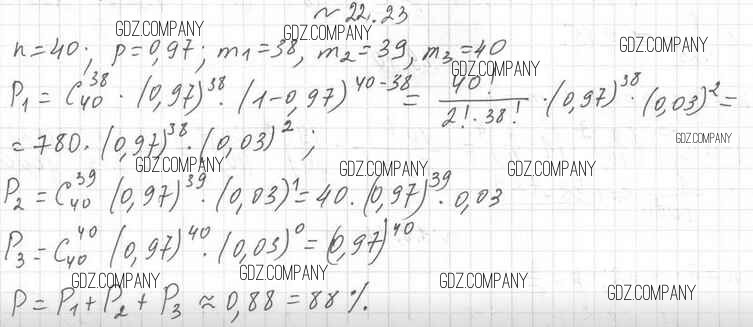 № 22.23
n = 40; p = 0,97; m₁ = 38, m₂ = 39, m₃ = 40
P₁ = C₄₀³⁸ · (0,97)³⁸ · (1-0,97)⁴⁰⁻³⁸ = 40! / 2! · 38! · (0,97)³⁸ · (0,03)² =
= 780 · (0,97)³⁸ · (0,03)²;
P₂ = C₄₀³⁹ (0,97)³⁹ · (0,03)¹ = 40 · (0,97)³⁹ · 0,03
P₃ = C₄₀⁴⁰ (0,97)⁴⁰ · (0,03)⁰ = (0,97)⁴⁰
P = P₁ + P₂ + P₃ ≈ 0,88 = 88 %.
GDZ.COMPANY
GDZ.COMPANY
GDZ.COMPANY
GDZ.COMPANY
GDZ.COMPANY
GDZ.COMPANY
GDZ.COMPANY
GDZ.COMPANY
GDZ.COMPANY
GDZ.COMPANY
GDZ.COMPANY
GDZ.COMPANY